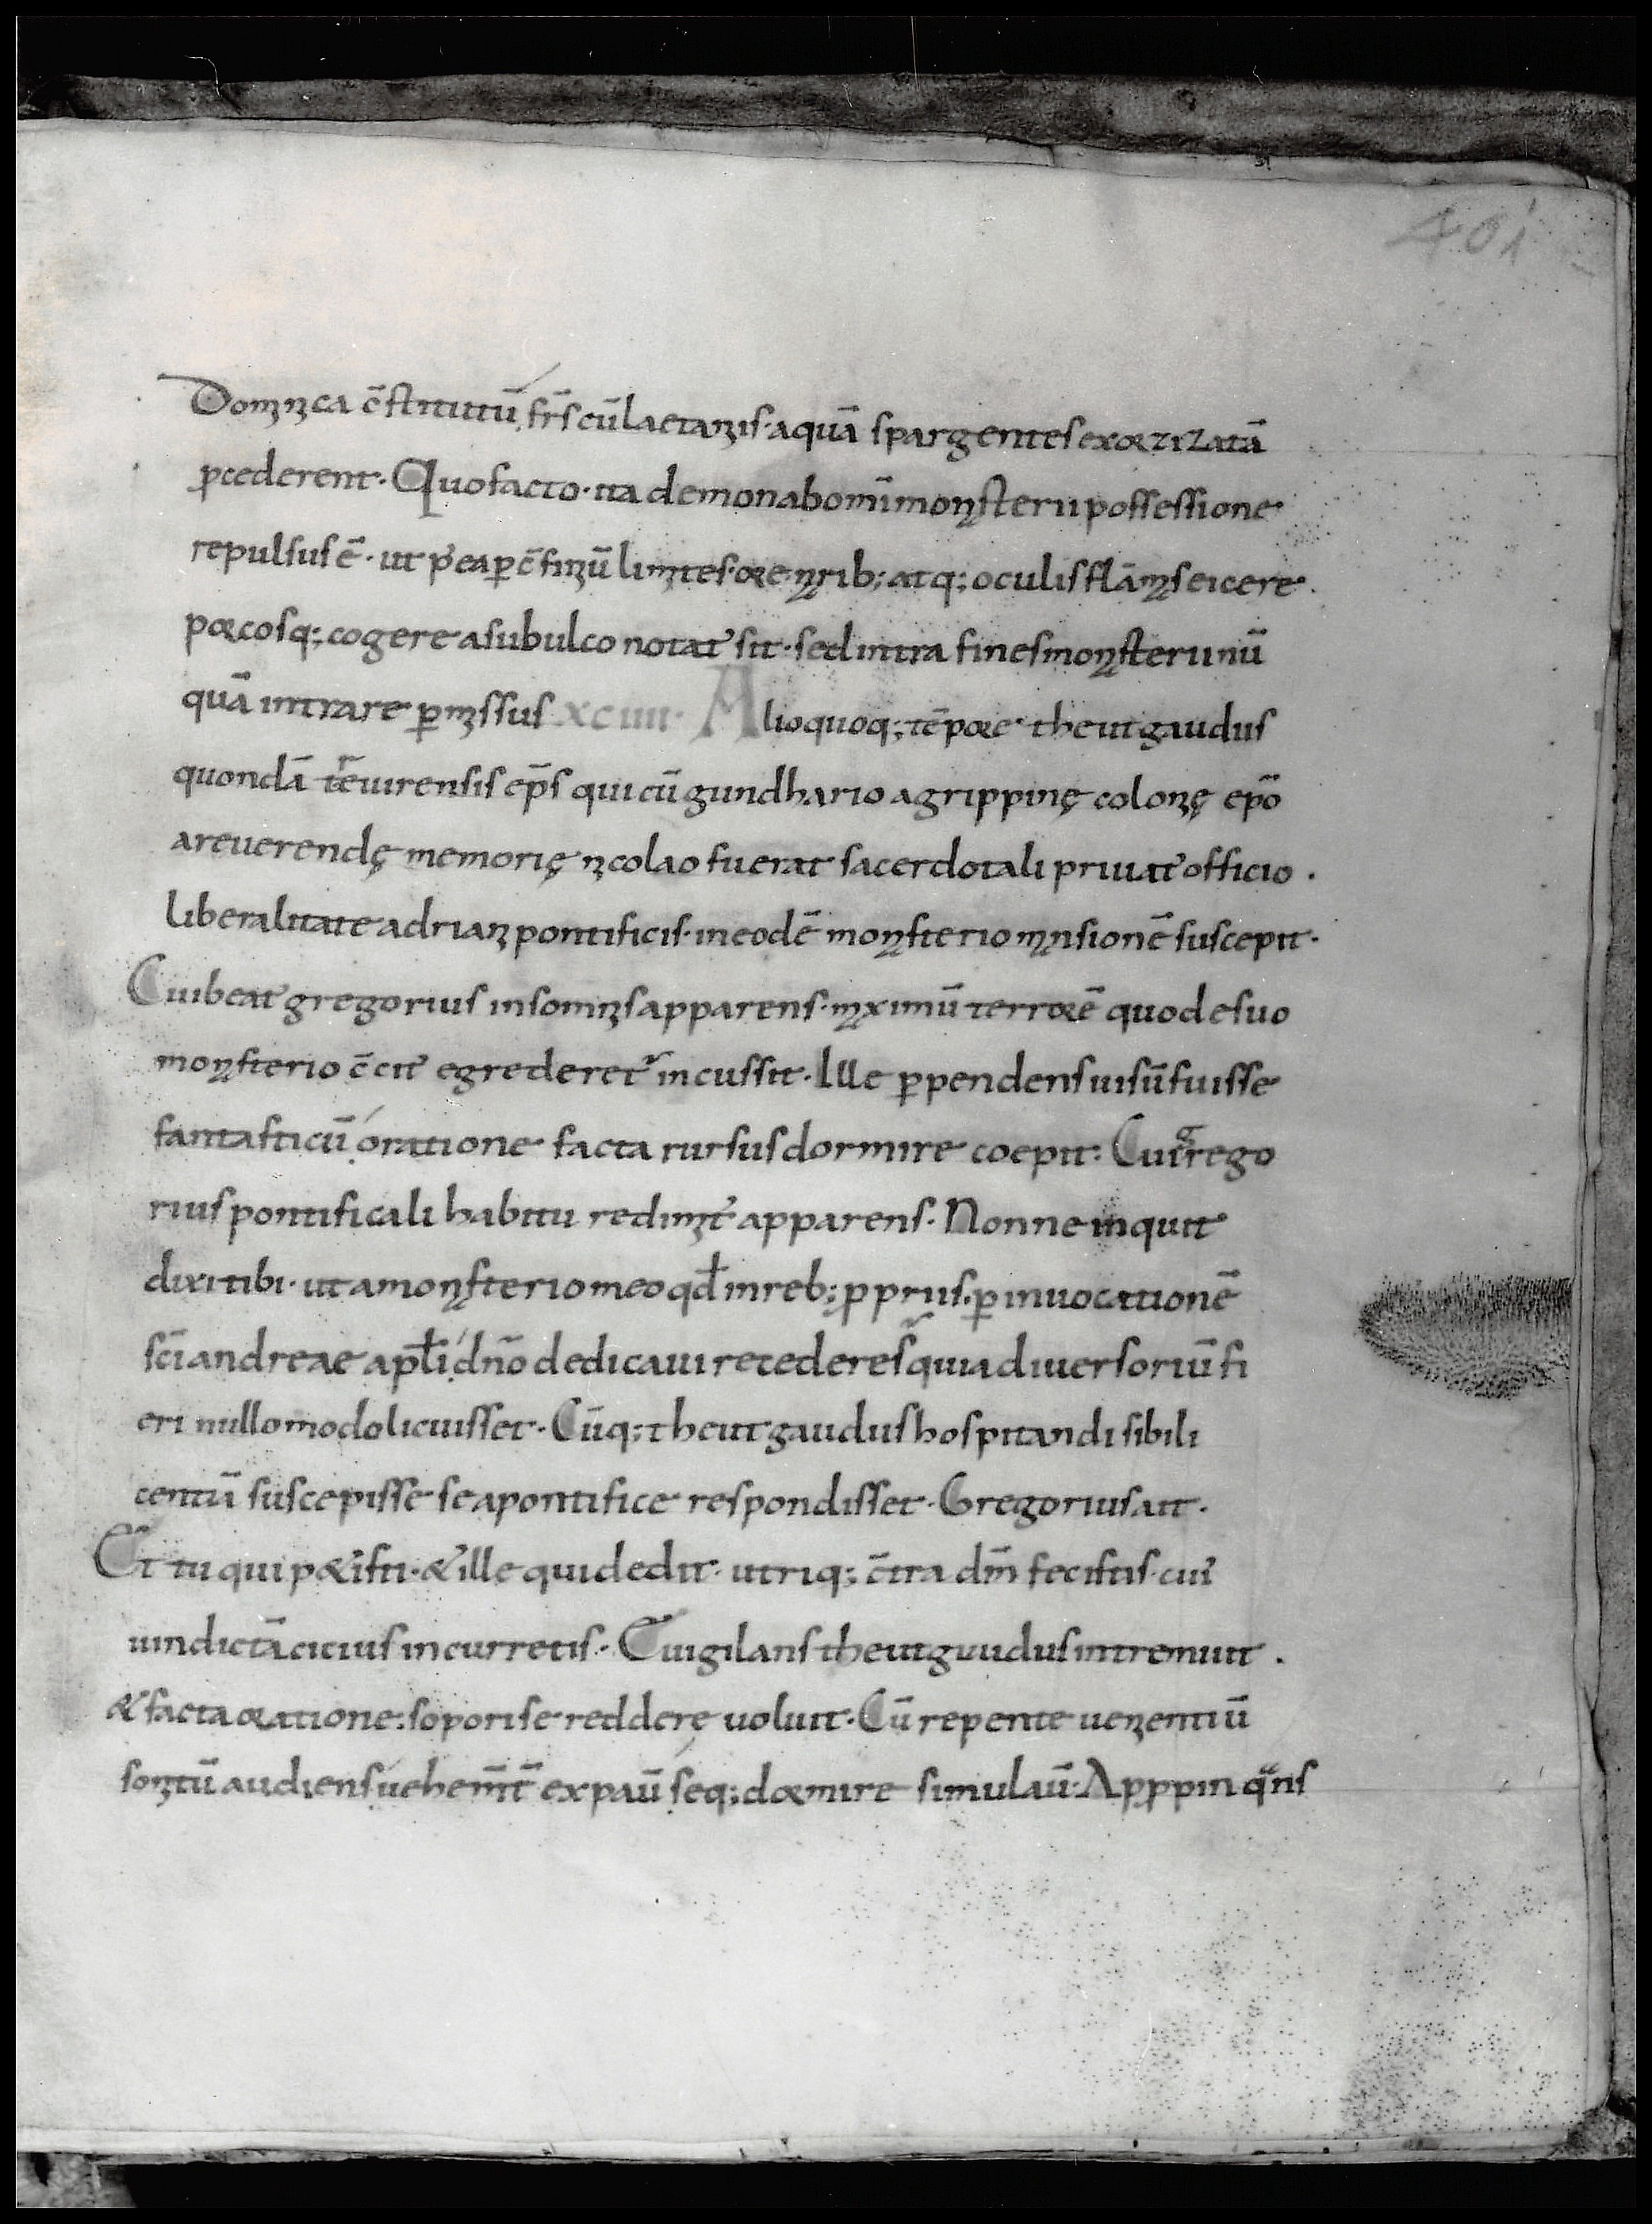 401
Dominica c̄stitutū fr̄s cū laetaniis · aquā spargentes exorzizatā
p̄cederent · Quo facto · ita demon ab omī monasterii possessione
repulsus ē · ut p̄ ea p̄ c̄finiū limites · ore naribꝫ atqꝫ oculis flāmas eicere
porcosqꝫ cogere a subulco notat᾽ sit · sed intra fines monasterii nū
quā intrare p̄missus XCIIII · Alio quoqꝫ tēpore theutgaudus
quondā treuirensis ep̄s qui cū gundhario agrippinę colonię ep̄o
a reuerendę memorię nicolao fuerat sacerdotali priuat᾽ officio ·
liberalitate adriani pontificis · in eodē monasterio mansionē suscepit ·
Cui beat᾽ gregorius in somnis apparens · maximū terrorē quo de suo
monasterio c̄cit᾽ egrederet᾽ incussit · Ille p̄pendens uisū fuisse
fantasticū oratione facta rursus dormire coepit : Cui grego
rius pontificali habitu redimit᾽ apparens · Nonne inquit
dixi tibi · ut a monasterio meo qd̄ in rebꝫ p̄priis · p̄ inuocationē
sc̄i andreae apl̄i dn̄o dedicaui recederes quia diuersoriū fi
eri nullo modo licuisset · Cūqꝫ theutgaudus hospitandi sibi li
centiā suscepisse se a pontifice respondisset · Gregorius ait ·
Et tu qui petisti · & ille qui dedit · utriqꝫ c̄tra dm̄ fecistis · cui᾽
uindictā cicius incurretis · Euigilans theutgaudus intremuit .
& facta oratione : sopori se reddere uoluit · Cū repente uenientiū
sonitū audiens uehem̄t̄ expaū seqꝫ dormire simulaū · Appropinqans